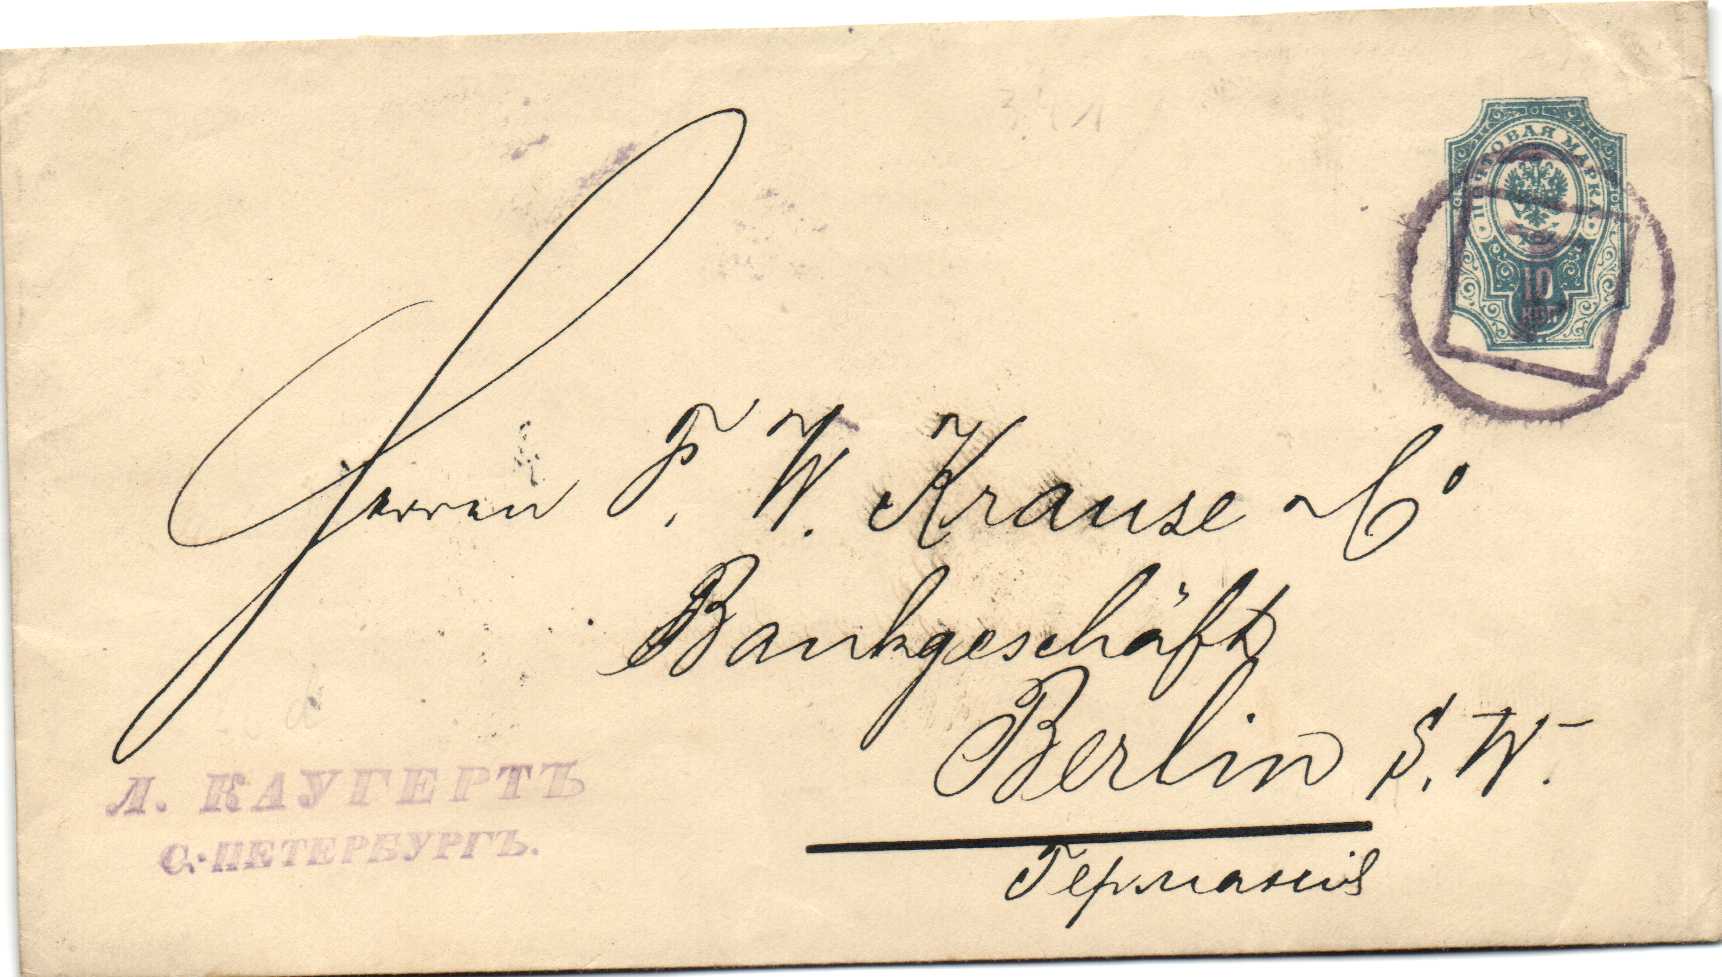 ПОЧТОВАЯ МАРКА
10
КОП
Herren F. W. Krause & Co
Bankgeschäft
Berlin S. W.
Германія
Л. КАУГЕРТЪ
С.-ПЕТЕРБУРГЪ.